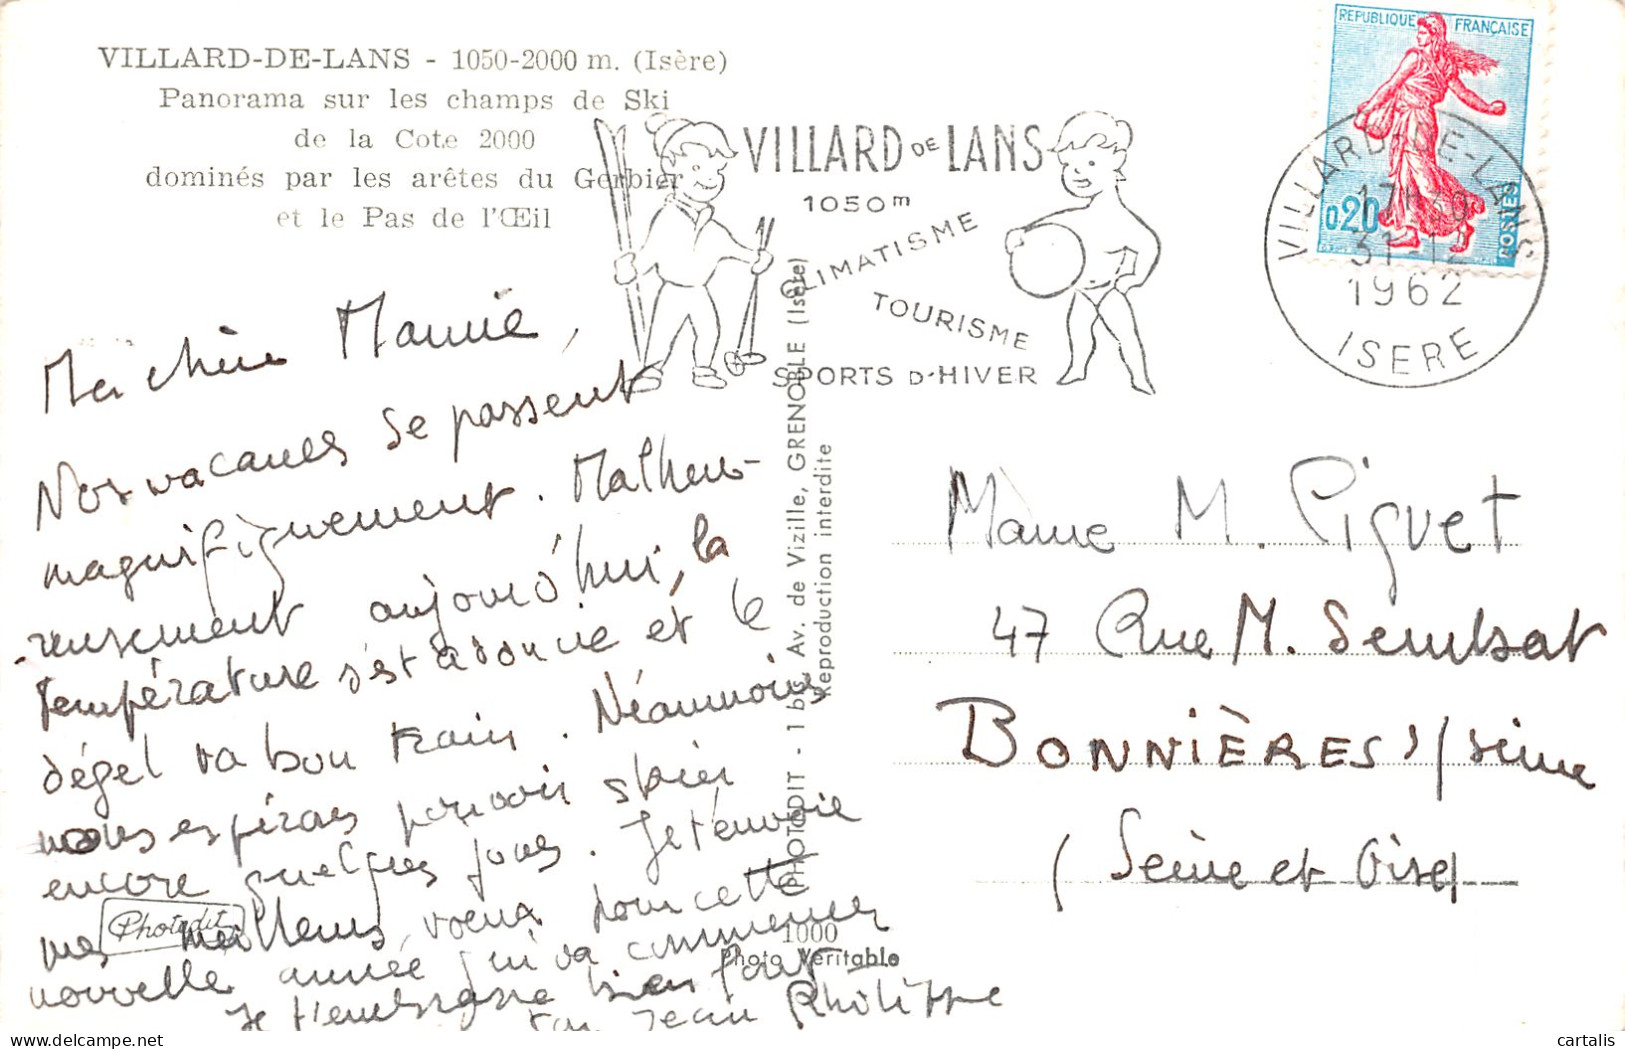 VILLARD-DE-LANS - 1050-2000 m. (Isère)
Panorama sur les champs de Ski
de la Cote 2000
dominés par les arêtes du Gerbier
et le Pas de l'Œil
VILLARD DE LANS
1050 m
CLIMATISME
TOURISME
SPORTS D'HIVER
REPUBLIQUE FRANÇAISE
0,20
POSTES
VILLARD-DE-LANS
17H30
31-12
1962
ISERE
Ma chère Mamie,
Nos vacances se passent
magnifiquement. Malheu-
reusement aujourd'hui, la
température s'est adoucie et le
dégel va bon train. Néanmoins
nous espérons pouvoir skier
encore quelques jours. Je t'envoie
mes meilleurs voeux pour cette
nouvelle année qui va commencer
Je t'embrasse bien fort
ton Jean Philippe
Mame M. Piguet
47 Rue M. Sembat
BONNIÈRES s/Seine
(Seine et Oise)
PHOTODIT - 1 bis Av. de Vizille, GRENOBLE (Isère)
Reproduction interdite
Photodit
1000
Photo Véritable
cartalis